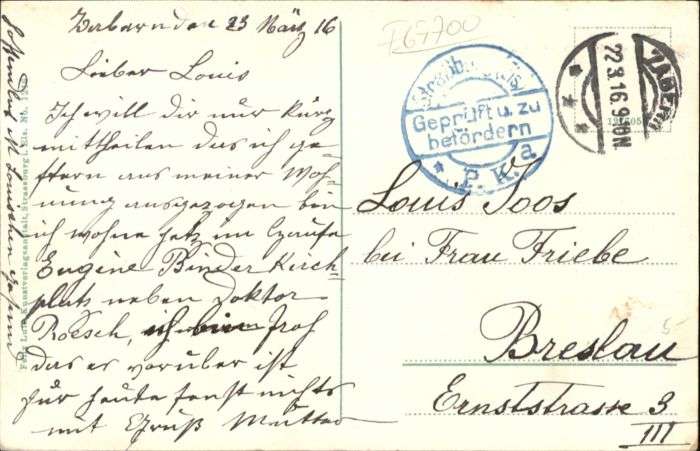 Zabern den 23 März 16
Lieber Louis
Ich will dir nur kurz
mittheilen das ich ge-
stern aus meiner Woh-
nung ausgezogen bin
ich wohne jetz im Hause
Eugène Binder Kirch-
platz neben Doktor
Roesch, ich bin froh
das es vorüber ist
für heute sonst nichts
mit Gruß Mutter
Hoffentlich ist
F67700
Straßb
Geprüft u. zu
befördern
P. K. a
ZABERN
22.3.16.9-10N
Louis Toos
bei Frau Friebe
Breslau
Ernststrasse 3
III
5-
Kunstverlagsanstalt, Strassburg i. Els. Nb.